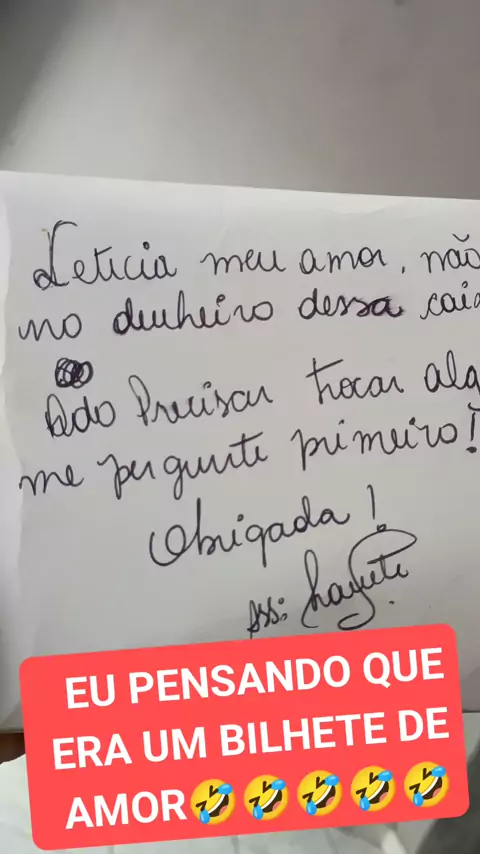 Leticia meu amor, não
no dinheiro dessa caix
Qdo Precisar trocar alg
me pergunte primeiro!
Obrigada!
Ass: 
EU PENSANDO QUE
ERA UM BILHETE DE
AMOR🤣🤣🤣🤣🤣